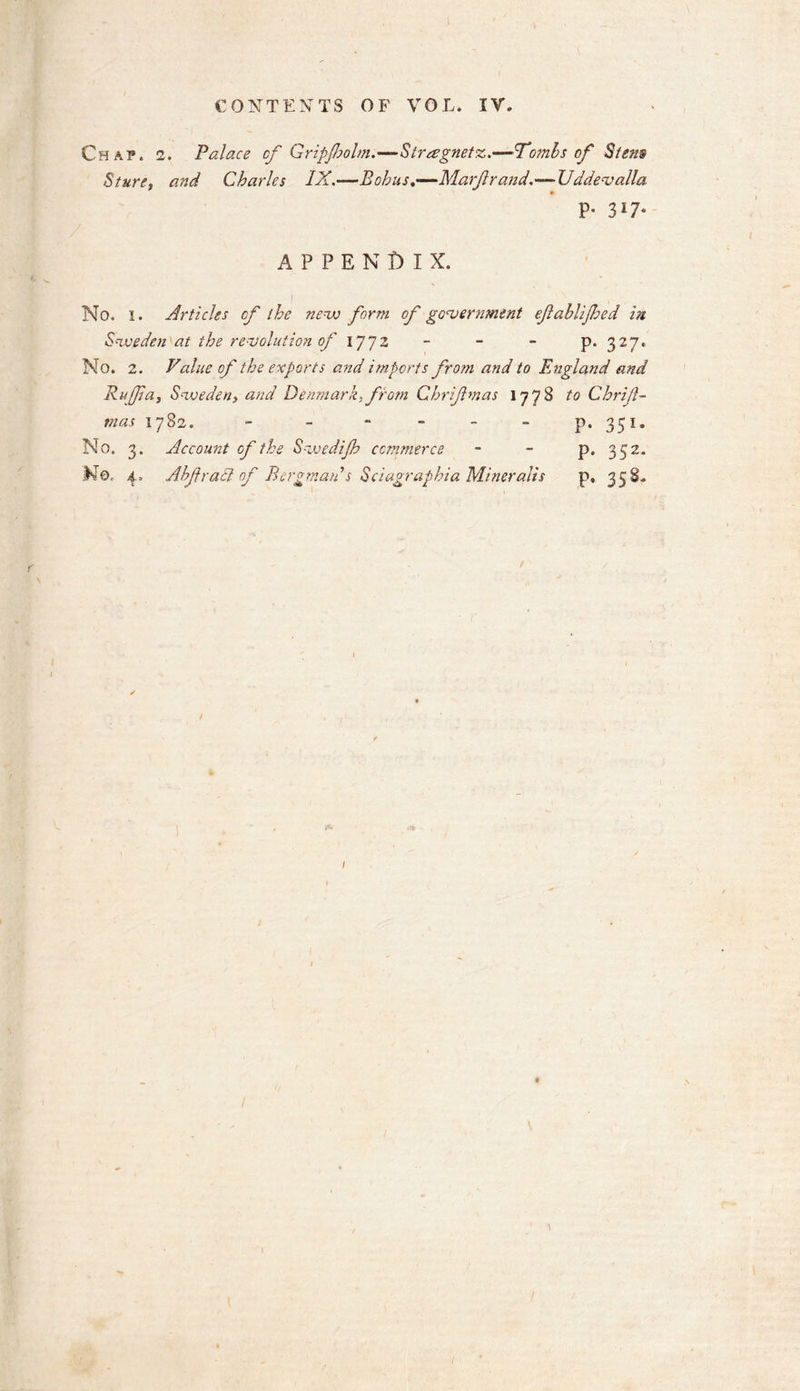 CONTENTS OF VOL. IV.
CHAP. 2. Palace of Gripſholm.—Strægnetz.—Tombs of Steno
Sture, and Charles IX.—Bohus.—Marſtrand.—Uddevalla
p. 317.
APPENDIX.
No. 1. Articles of the new form of government eſtabliſhed in
Sweden at the revolution of 1772 - - - p. 327.
No. 2. Value of the exports and imports from and to England and
Ruſſia, Sweden, and Denmark, from Chriſtmas 1778 to Chriſt-
mas 1782. - - - - - - p. 351.
No. 3. Account of the Swediſh commerce - - p. 352.
No. 4. Abſtract of Bergman's Sciagraphia Mineralis p. 358.